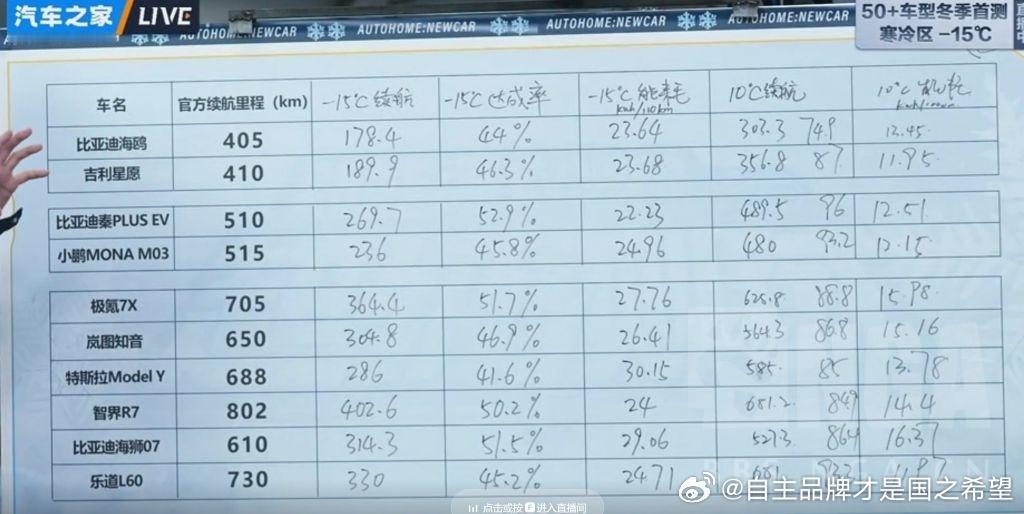 汽车之家 LIVE
AUTOHOME:NEWCAR AUTOHOME:NEWCAR AUTOHOME:NEWCAR
50+车型冬季首测
寒冷区 -15℃
车名 官方续航里程（km） -15℃续航 -15℃达成率 -15℃能耗 kwh/100km 10℃续航 10℃能耗
比亚迪海鸥 405 178.4 44% 23.64 303.3 74.9 12.45
吉利星愿 410 189.9 46.3% 23.68 356.8 87 11.95
比亚迪秦PLUS EV 510 269.7 52.9% 22.23 489.5 96 12.51
小鹏MONA M03 515 236 45.8% 24.96 480 93.2 12.15
极氪7X 705 364.4 51.7% 27.76 625.8 88.8 15.98
岚图知音 650 304.8 46.9% 26.41 564.3 86.8 15.16
特斯拉Model Y 688 286 41.6% 30.15 585 85 13.78
智界R7 802 402.6 50.2% 24 681.2 84.9 14.4
比亚迪海狮07 610 314.3 51.5% 29.06 527.3 86.4 16.37
乐道L60 730 330 45.2% 24.71 681
点击或按F进入直播间
@自主品牌才是国之希望